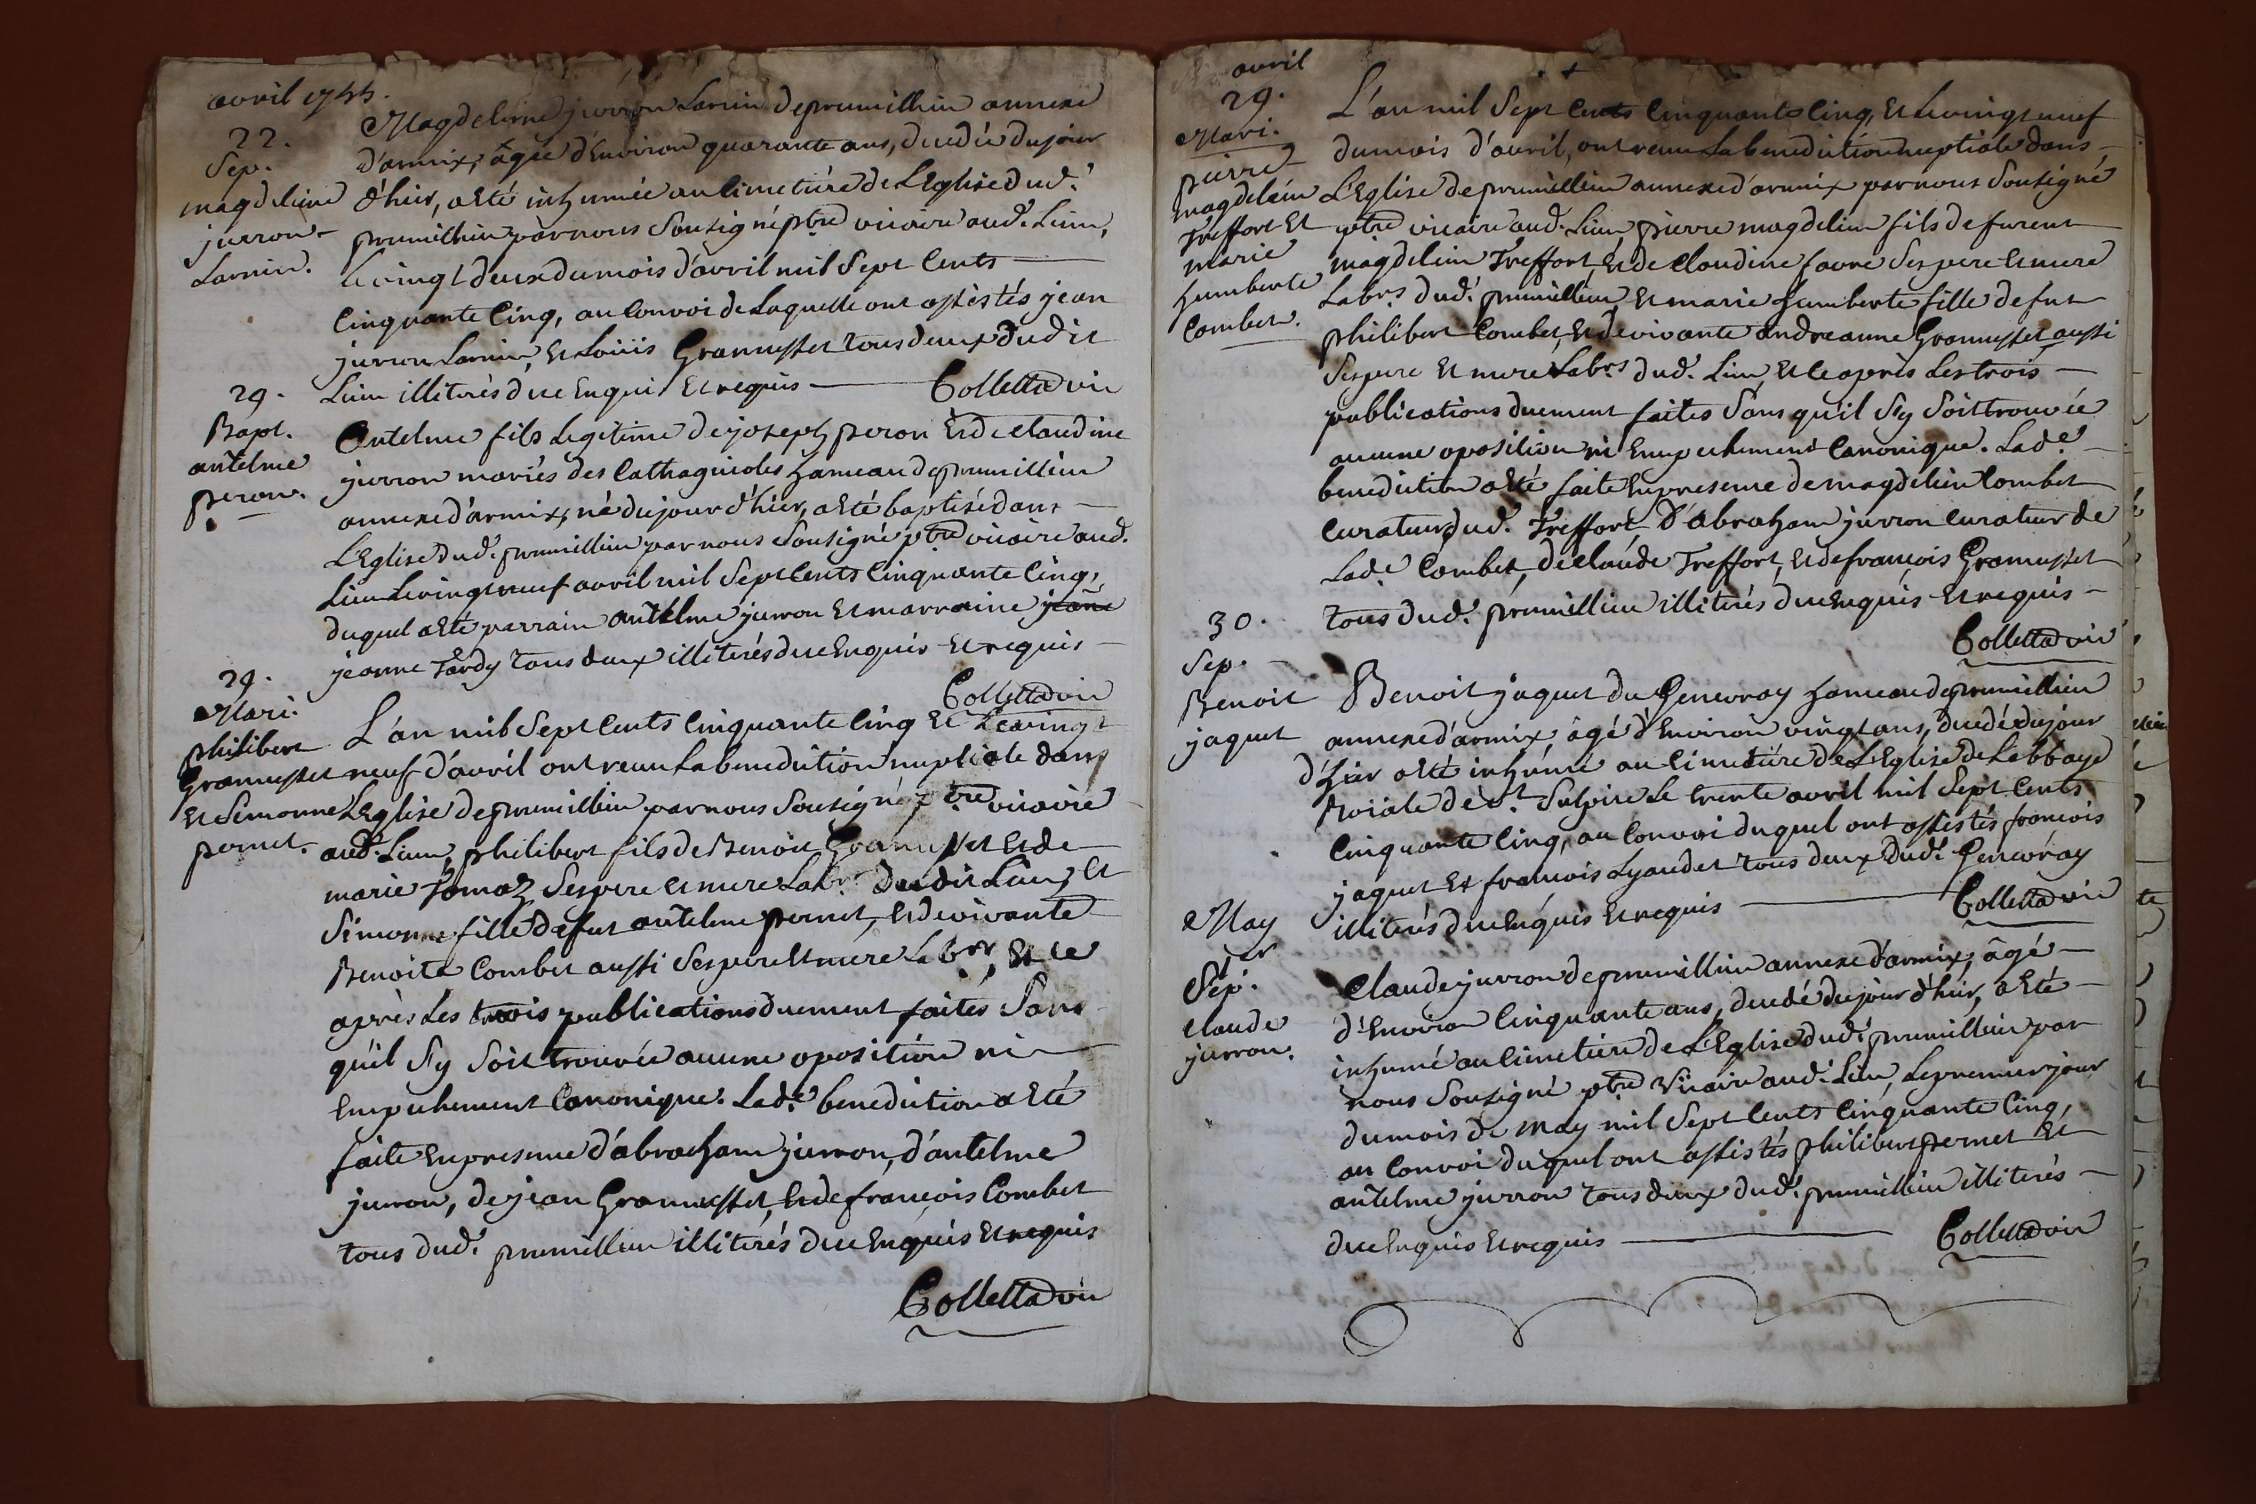 avril 1755.
22.
Sep.
magdeleine
jurron
Larnin.
Magdeleine jurron Larnin de prumillieu annexe
d'armix, âgée d'Environ quarante ans, decedée du jour
d'hier, a Eté inhumée au Cimetière de L'Eglise dud.
prumillieu par nous Sousigné ptre vicaire aud. Lieu,
Le vingt deux du mois d'avril mil Sept Cents
Cinquante Cinq, au Convoi de Laquelle ont assistés jean
jurron Larnin, Et Loüis Gramusset tous deux dudit
Lieu illiterés de ce Enquis Et requis Colletta vic
29.
Bapt.
antelme
peron.
Antelme fils Legitime de joseph peron Et de Claudine
jurron mariés des Cathagnioles hameau de prumillieu
annexe d'armix, né du jour d'hier, a Eté baptisé dans
L'Eglise dud. prumillieu par nous Sousigné ptre vicaire aud.
Lieu Le vingt neuf avril mil Sept Cents Cinquante Cinq,
duquel a Eté parrain antelme jurron Et marraine jeane
jeanne Tardy tous deux illiterés de ce Enquis Et requis
Colletta vic
29.
Mari.
philibert
Gramusset
Et Simonne
pernet.
L'an mil Sept Cents Cinquante Cinq Et Le vingt
neuf d'avril ont receu La benediction nuptiale dans
L'Eglise de prumillieu par nous Sousigné ptre vicaire
aud. Lieu, philibert fils de Benoit Gramusset Et de
marie Tomaz Ses pere et mere Labrs dudit Lieu, Et
Simonne fille de fut antelme pernet, Et de vivante
Benoite Combet aussi Ses pere Et mere Labrs, Et ce
après Les trois publications duement faites Sans
qu'il S'y Soit trouvée aucune oposition ni
Empechement Canonique. Lade. benediction a Eté
faite En presence d'abraham jurron, d'antelme
jurron, de jean Gramusset, Et de françois Combet
tous dud. prumillieu illiterés de ce Enquis Et requis
Colletta vic
avril
29.
Mari.
pierre
magdelein
Treffort Et
marie
humberte
Combet.
L'an mil Sept Cents Cinquante Cinq, Et Le vingt neuf
du mois d'avril, ont receu La benediction nuptiale dans
L'Eglise de prumillieu annexe d'armix par nous Sousigné
ptre vicaire aud. Lieu pierre magdelein fils de furent
magdelein Treffort, Et de Claudine favre Ses pere Et mere
Labrs dud. prumillieu Et marie humberte fille de fut
philibert Combet, Et de vivante andreanne Gramusset aussi
Ses pere Et mere Labrs dud. Lieu, Et ce après Les trois
publications duement faites Sans qu'il S'y Soit trouvée
aucune oposition ni Empechement Canonique. Lade.
benediction a Eté faite En presence de magdelein Combet
Curateur dud. Treffort, d'abraham jurron Curateur de
Lade. Combet, de Claude Treffort, Et de françois Gramusset
tous dud. prumillieu illiterés de ce Enquis Et requis
Colletta vic
30.
Sep.
Benoit
jaquet
Benoit jaquet du Genevray hameau de prumillieu
annexe d'armix, âgé d'Environ vingt ans, decedé du jour
d'hier a Eté inhumé au Cimetière de L'Eglise de L'abbaye
Roiale de St. Sulpice Le trente avril mil Sept Cents
Cinquante Cinq, au Convoi duquel ont assistés françois
jaquet Et françois Lyaudet tous deux dud. Genevray
illiterés de ce Enquis Et requis Colletta vic
May
1er
Sep.
Claude
jurron.
Claude jurron de prumillieu annexe d'armix, âgé
d'Environ Cinquante ans, decedé du jour d'hier, a Eté
inhumé au Cimetiere de L'Eglise dud. prumillieu par
nous Sousigné ptre Vicaire aud. Lieu, Le premier jour
du mois de may mil Sept Cents Cinquante Cinq,
au Convoi duquel ont assistés philibert pernet Et
antelme jurron tous deux dud. prumillieu illiterés
de ce Enquis Et requis Colletta vic